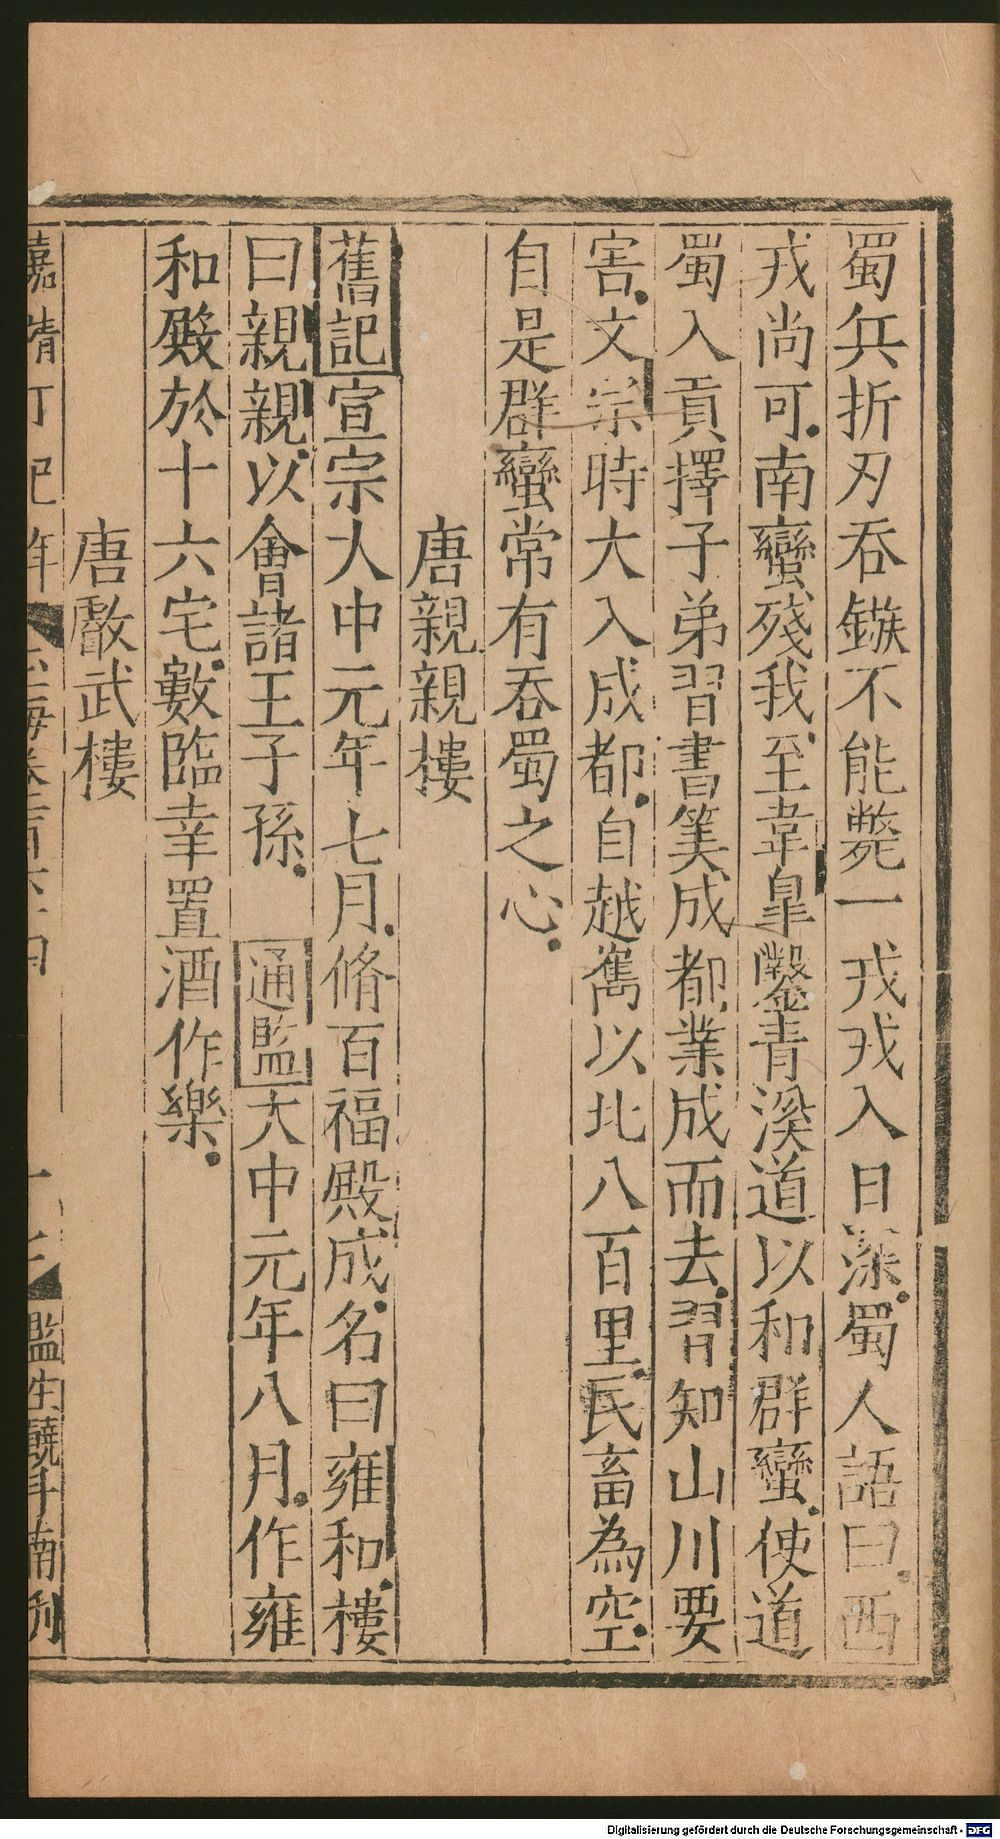 蜀兵折刃吞鏃不能斃一戎戎入日深蜀人語曰西
戎尚可南蠻殘我至韋皐鑿青溪道以和群蠻使道
蜀入貢擇子弟習書筭成都業成而去習知山川要
害文宗時大入成都自越嶲以北八百里民畜為空
自是群蠻常有吞蜀之心
唐親親樓
舊記宣宗大中元年七月脩百福殿成名曰雍和樓
曰親親以會諸王子孫 通鑑大中元年八月作雍
和殿於十六宅數臨幸置酒作樂
唐敽武樓
嘉靖丁巳年 玉海卷一百六十四 監生饒斗南刊
Digitalisierung gefördert durch die Deutsche Forschungsgemeinschaft - DFG